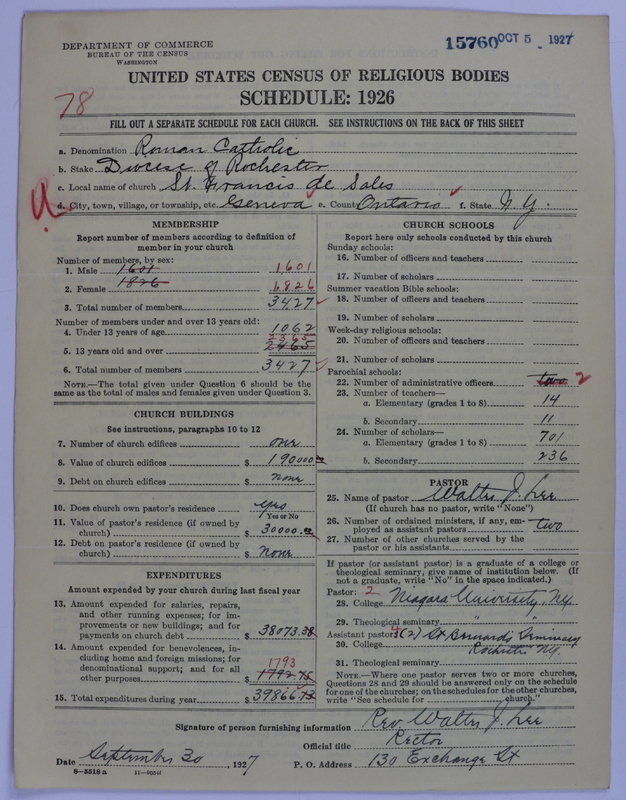 DEPARTMENT OF COMMERCE
BUREAU OF THE CENSUS
WASHINGTON
15760 OCT 5 - 1927
UNITED STATES CENSUS OF RELIGIOUS BODIES
SCHEDULE: 1926
78
FILL OUT A SEPARATE SCHEDULE FOR EACH CHURCH. SEE INSTRUCTIONS ON THE BACK OF THIS SHEET
a. Denomination Roman Catholic
b. Stake Diocese of Rochester
c. Local name of church St. Francis de Sales
d. City, town, village, or township, etc. Geneva e. County Ontario f. State N.Y.
MEMBERSHIP
Report number of members according to definition of
member in your church
Number of members, by sex:
1. Male 1601 1,601
2. Female 1826 1826
3. Total number of members 3427
Number of members under and over 13 years old:
4. Under 13 years of age 1062
2365
5. 13 years old and over 2465
6. Total number of members 3427
NOTE.—The total given under Question 6 should be
same as the total of males and females given under Question 3.
CHURCH BUILDINGS
See instructions, paragraphs 10 to 12
7. Number of church edifices one
8. Value of church edifices $ 190000
9. Debt on church edifices $ none
10. Does church own pastor's residence yes
Yes or No
11. Value of pastor's residence (if owned by
church) $ 30000
12. Debt on pastor's residence (if owned by
church) $ None
EXPENDITURES
Amount expended by your church during last fiscal year
13. Amount expended for salaries, repairs,
and other running expenses; for im-
provements or new buildings; and for
payments on church debt $ 38073.38
14. Amount expended for benevolences, in-
cluding home and foreign missions; for
denominational support; and for all 1793
other purposes $ 1792.75
15. Total expenditures during year $ 39866.13
CHURCH SCHOOLS
Report here only schools conducted by this church
Sunday schools:
16. Number of officers and teachers
17. Number of scholars
Summer vacation Bible schools:
18. Number of officers and teachers
19. Number of scholars
Week-day religious schools:
20. Number of officers and teachers
21. Number of scholars
Parochial schools:
22. Number of administrative officers two 2
23. Number of teachers—
a. Elementary (grades 1 to 8) 14
b. Secondary 11
24. Number of scholars—
a. Elementary (grades 1 to 8) 701
b. Secondary 236
PASTOR
25. Name of pastor Walter J. Lee
(If church has no pastor, write "None")
26. Number of ordained ministers, if any, em-
ployed as assistant pastors two
27. Number of other churches served by the
pastor or his assistants
If pastor (or assistant pastor) is a graduate of a college or
theological seminary, give name of institution below. (If
not a graduate, write "No" in the space indicated.)
Pastor: 2
28. College Niagara University, N.Y.
29. Theological seminary " "
Assistant pastor: (2) St Bernard's Seminary
30. College Rochester N.Y.
31. Theological seminary
NOTE.—Where one pastor serves two or more churches,
Questions 28 and 29 should be answered only on the schedule
for one of the churches; on the schedules for the other churches,
write "See schedule for church."
Signature of person furnishing information Rev. Walter J. Lee
Official title Rector
Date September 30, 1927 P. O. Address 130 Exchange St
8—5518 a 11—9054f